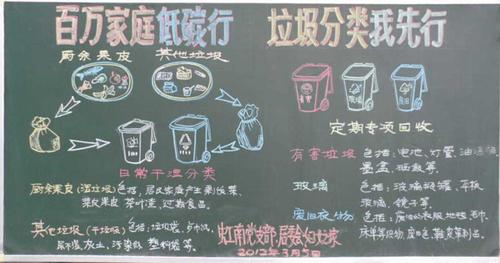 百万家庭低碳行
垃圾分类我先行
厨余果皮
其他垃圾
日常干湿分类
厨余果皮(湿垃圾)包括:居民家庭产生剩饭菜
菜皮果皮 茶叶渣、过期食品。
其他垃圾(干垃圾)包括:垃圾袋、
灰土、污染纸、塑料袋等。
定期专项回收
有害垃圾
包括:电池、灯管、油漆桶
墨盒、
玻璃
包括:玻璃瓶罐、平板
玻璃、镜子等
废旧衣物
包括:
床单等织物、
虹南党支部、居委、妇女之家
2012年3月5日